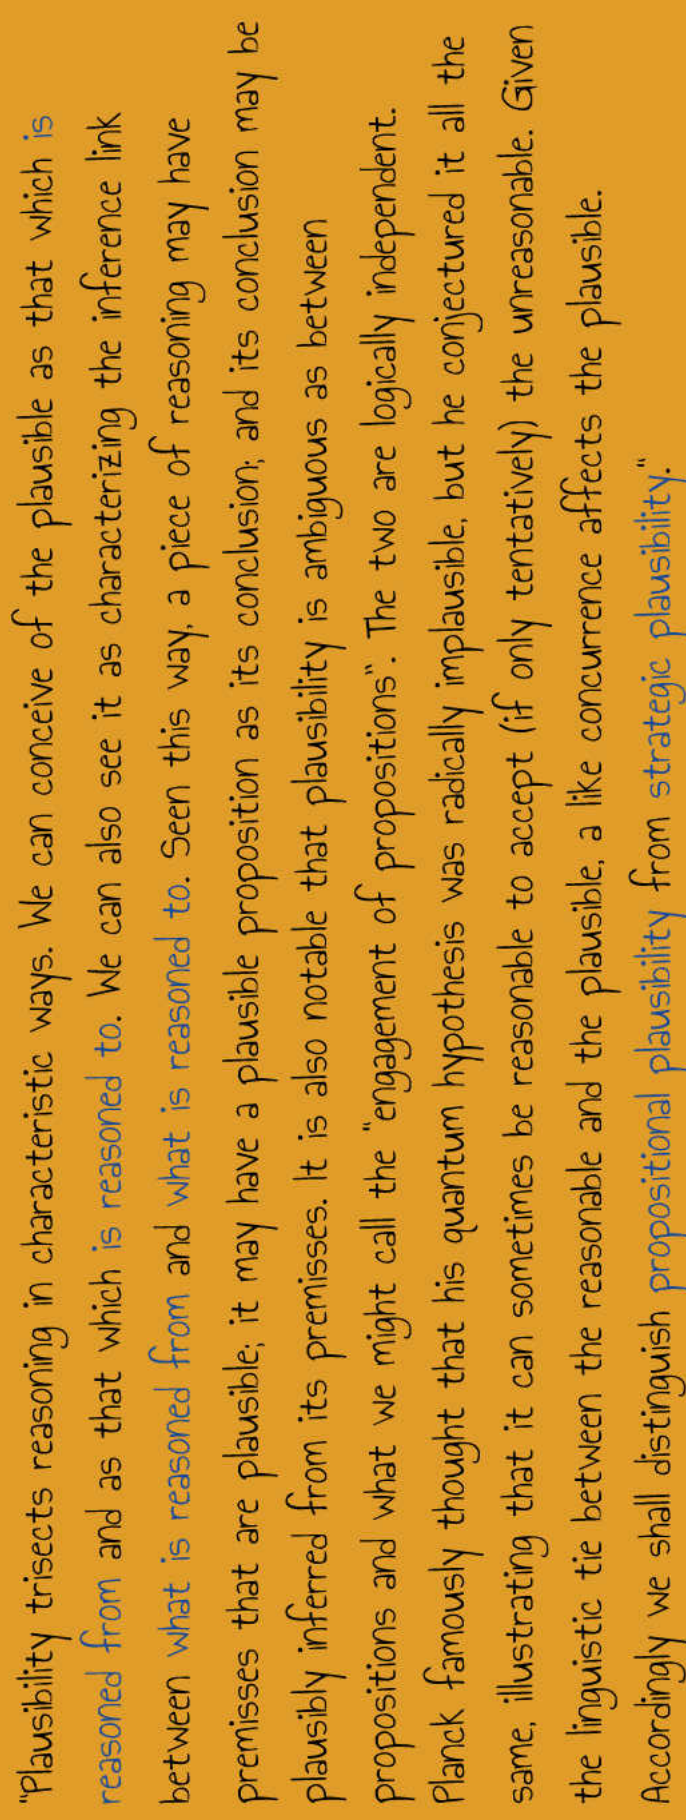 "Plausibility trisects reasoning in characteristic ways. We can conceive of the plausible as that which is
reasoned from and as that which is reasoned to. We can also see it as characterizing the inference link
between what is reasoned from and what is reasoned to. Seen this way, a piece of reasoning may have
premisses that are plausible; it may have a plausible proposition as its conclusion; and its conclusion may be
plausibly inferred from its premisses. It is also notable that plausibility is ambiguous as between
propositions and what we might call the "engagement of propositions". The two are logically independent.
Planck famously thought that his quantum hypothesis was radically implausible, but he conjectured it all the
same, illustrating that it can sometimes be reasonable to accept (if only tentatively) the unreasonable. Given
the linguistic tie between the reasonable and the plausible, a like concurrence affects the plausible.
Accordingly we shall distinguish propositional plausibility from strategic plausibility."